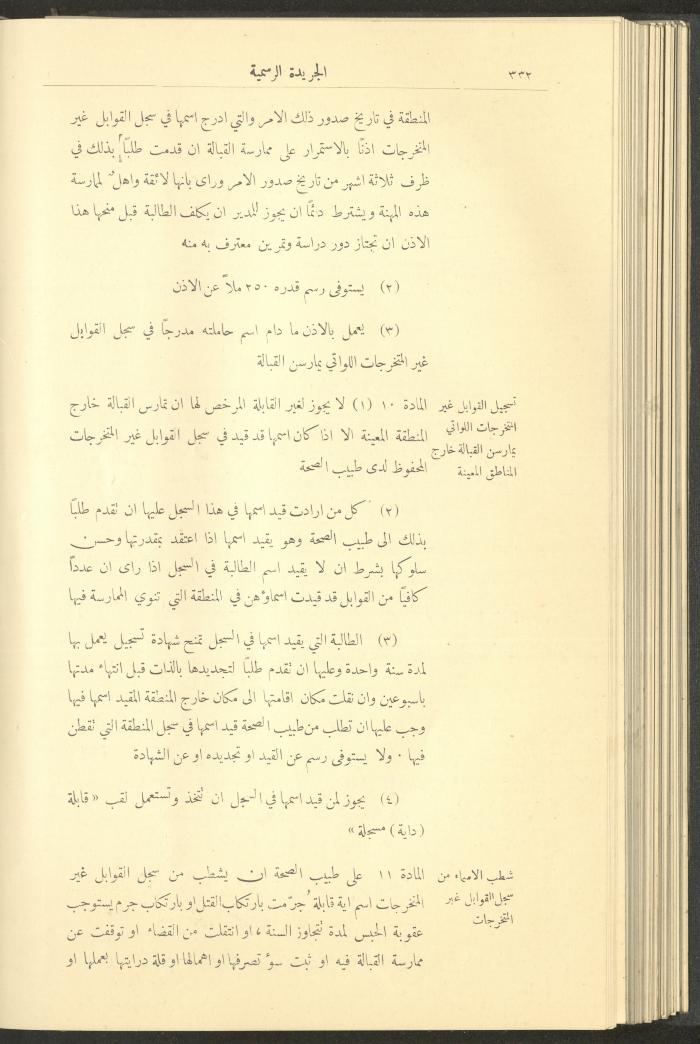 ٣٣٢
الجريدة الرسمية
المنطقة في تاريخ صدور ذلك الامر والتي ادرج اسمها في سجل القوابل غير
المتخرجات اذنًا بالاستمرار على ممارسة القبالة ان قدمت طلبًا بذلك في
ظرف ثلاثة اشهر من تاريخ صدور الامر وراى بانها لائقة واهلٌ لممارسة
هذه المهنة ويشترط دائمًا ان يجوز للمدير ان يكلف الطالبة قبل منحها هذا
الاذن ان تجتاز دور دراسة وتمرين معترف به منه
(٢) يستوفى رسم قدره ٢٥٠ ملاً عن الاذن
(٣) يعمل بالاذن ما دام اسم حاملته مدرجًا في سجل القوابل
غير المتخرجات اللواتي يمارسن القبالة
تسجيل القوابل غير
المتخرجات اللواتي
يمارسن القبالة خارج
المناطق المعينة
المادة ١٠ (١) لا يجوز لغير القابلة المرخص لها ان تمارس القبالة خارج
المنطقة المعينة الا اذا كان اسمها قد قيد في سجل القوابل غير المتخرجات
المحفوظ لدى طبيب الصحة
(٢) كل من ارادت قيد اسمها في هذا السجل عليها ان تقدم طلبًا
بذلك الى طبيب الصحة وهو يقيد اسمها اذا اعتقد بمقدرتها وحسن
سلوكها بشرط ان لا يقيد اسم الطالبة في السجل اذا راى ان عددًا
كافيًا من القوابل قد قيدت اسماؤهن في المنطقة التي تنوي الممارسة فيها
(٣) الطالبة التي يقيد اسمها في السجل تمنح شهادة تسجيل يعمل بها
لمدة سنة واحدة وعليها ان تقدم طلبًا لتجديدها بالذات قبل انتهاء مدتها
باسبوعين وان نقلت مكان اقامتها الى مكان خارج المنطقة المقيد اسمها فيها
وجب عليها ان تطلب من طبيب الصحة قيد اسمها في سجل المنطقة التي تقطن
فيها · ولا يستوفى رسم عن القيد او تجديده او عن الشهادة
(٤) يجوز لمن قيد اسمها في السجل ان تتخذ وتستعمل لقب « قابلة
(داية) مسجلة »
شطب الاسماء من
سجل القوابل غير
المتخرجات
المادة ١١ على طبيب الصحة ان يشطب من سجل القوابل غير
المتخرجات اسم اية قابلة جرّمت بارتكاب القتل او بارتكاب جرم يستوجب
عقوبة الحبس لمدة تتجاوز السنة ، او انتقلت من القضاء او توقفت عن
ممارسة القبالة فيه او ثبت سوء تصرفها او اهمالها او قلة درايتها بعملها او